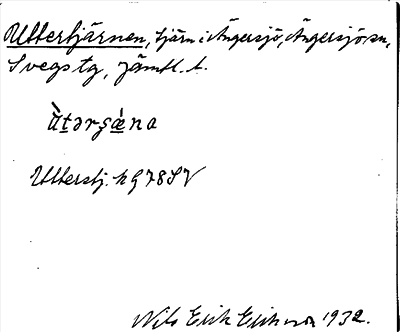 Uttertjärnen, tjärn i Ängersjö, Ängersjö sn,
Svegs tg, Jämtl. l.
ùtərʂǽna
Utterstj. k G78SV
Nils Erik Eriksson 1932.